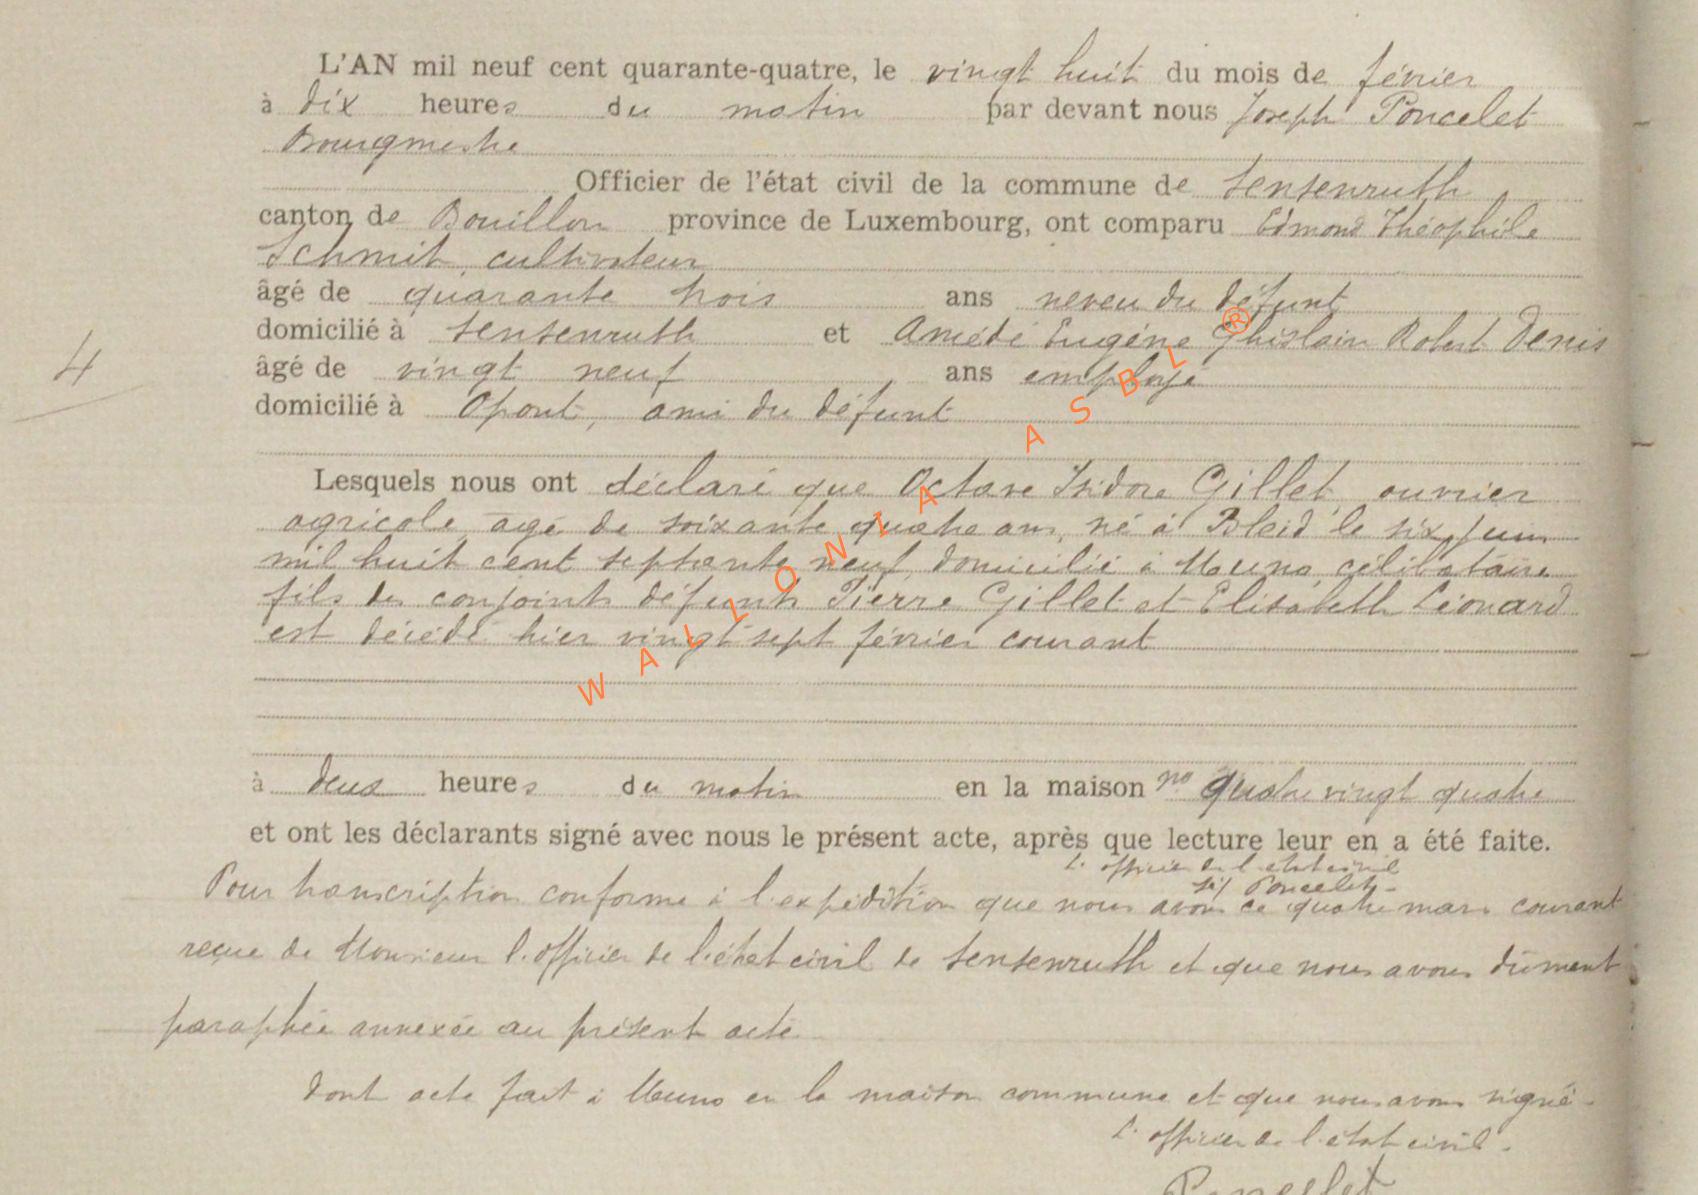 L'AN mil neuf cent quarante-quatre, le vingt huit du mois de février
à dix heures du matin par devant nous Joseph Poncelet
Bourgmestre
Officier de l'état civil de la commune de Sensenruth
canton de Bouillon province de Luxembourg, ont comparu Edmond Théophile
Schmit, cultivateur
âgé de quarante trois ans neveu du défunt
domicilié à Sensenruth et Amédé Eugène Ghislain Robert Denis
âgé de vingt neuf ans employé
domicilié à Opont, ami du défunt
4
Lesquels nous ont déclaré que Octave Isidore Gillet, ouvrier
agricole, agé de soixante quatre ans, né à Bleid le six juin
mil huit cent septante neuf, domicilié à Muno, célibataire
fils des conjoints défunts Pierre Gillet et Elisabeth Léonard
est décédé hier vingt sept février courant
WALLONIA ASBL ®
à deux heures du matin en la maison no quatre vingt quatre
et ont les déclarants signé avec nous le présent acte, après que lecture leur en a été faite.
L'officier de l'état civil
sé/ Poncelet-
Pour transcription conforme à l'expédition que nous avons ce quatre mars courant
reçue de Monsieur l'officier de l'état civil de Sensenruth et que nous avons dûment
paraphée annexée au présent acte
Dont acte fait à Muno en la maison commune et que nous avons signé-
L'officier de l'état civil.